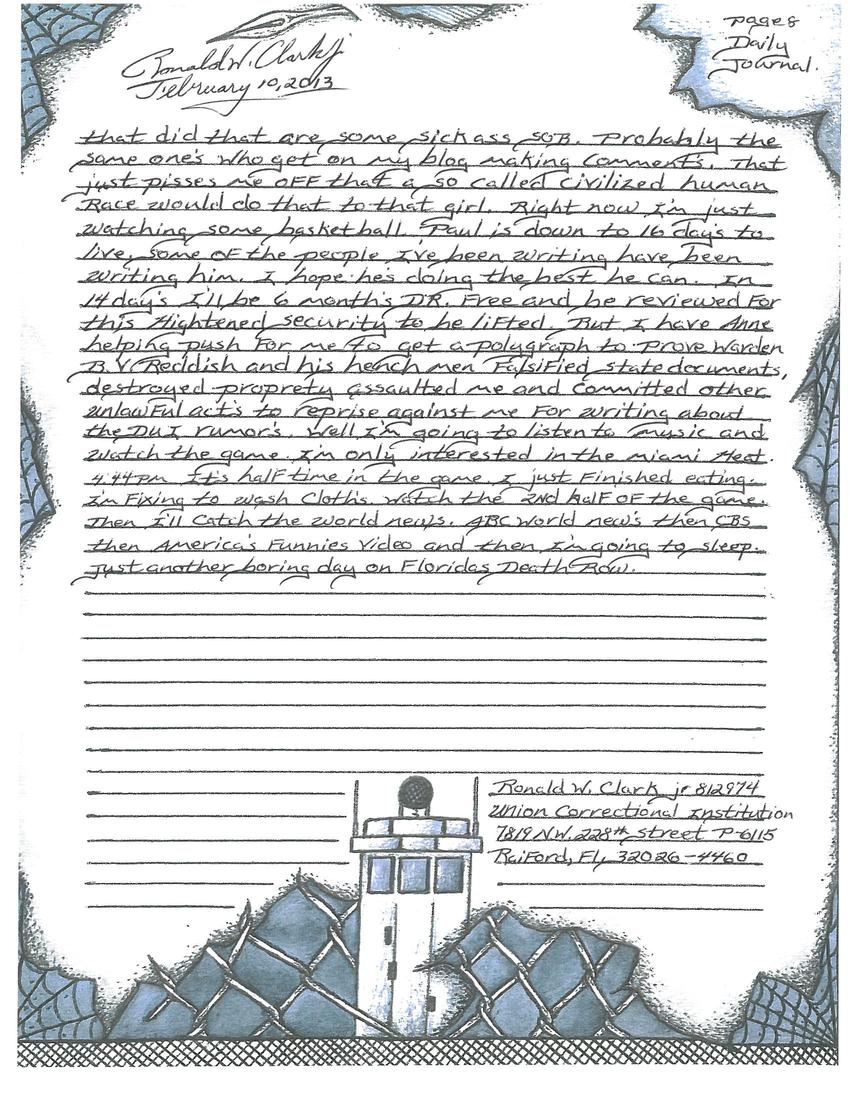 Ronald W. Clark jr
February 10, 2013
pages
Daily
Journal.
that did that are some sick ass SOB. Probably the
same one's who get on my blog making comments. That
just pisses me off that a so called civilized human
Race would do that to that girl. Right now I'm just
watching some basketball. Paul is down to 16 day's to
live, some of the people I've been writing have been
writing him. I hope he's doing the best he can. In
14 day's I'll be 6 month's DR. Free and be reviewed For
this Hightened security to be lifted. But I have Anne
helping push For me to get a polygraph to prove Warden
B.V. Reddish and his hench men Falsified state documents,
destroyed proprety assaulted me and committed other
unlawFul act's to reprise against me For writing about
the DUI rumor's. Well I'm going to listen to music and
watch the game. I'm only interested in the miami Heat.
4:44pm It's halF time in the game. I just Finished eating.
I'm Fixing to wash Cloth's. Watch the 2nd half OF the game.
Then I'll Catch the world news. ABC World new's then CBS
then America's Funnies Video and then I'm going to sleep.
Just another boring day on Floridas Death Row.
Ronald W. Clark jr 812974
Union Correctional Institution
7819 N.W. 228th street P-6115
RaiFord, Fl, 32026-4460